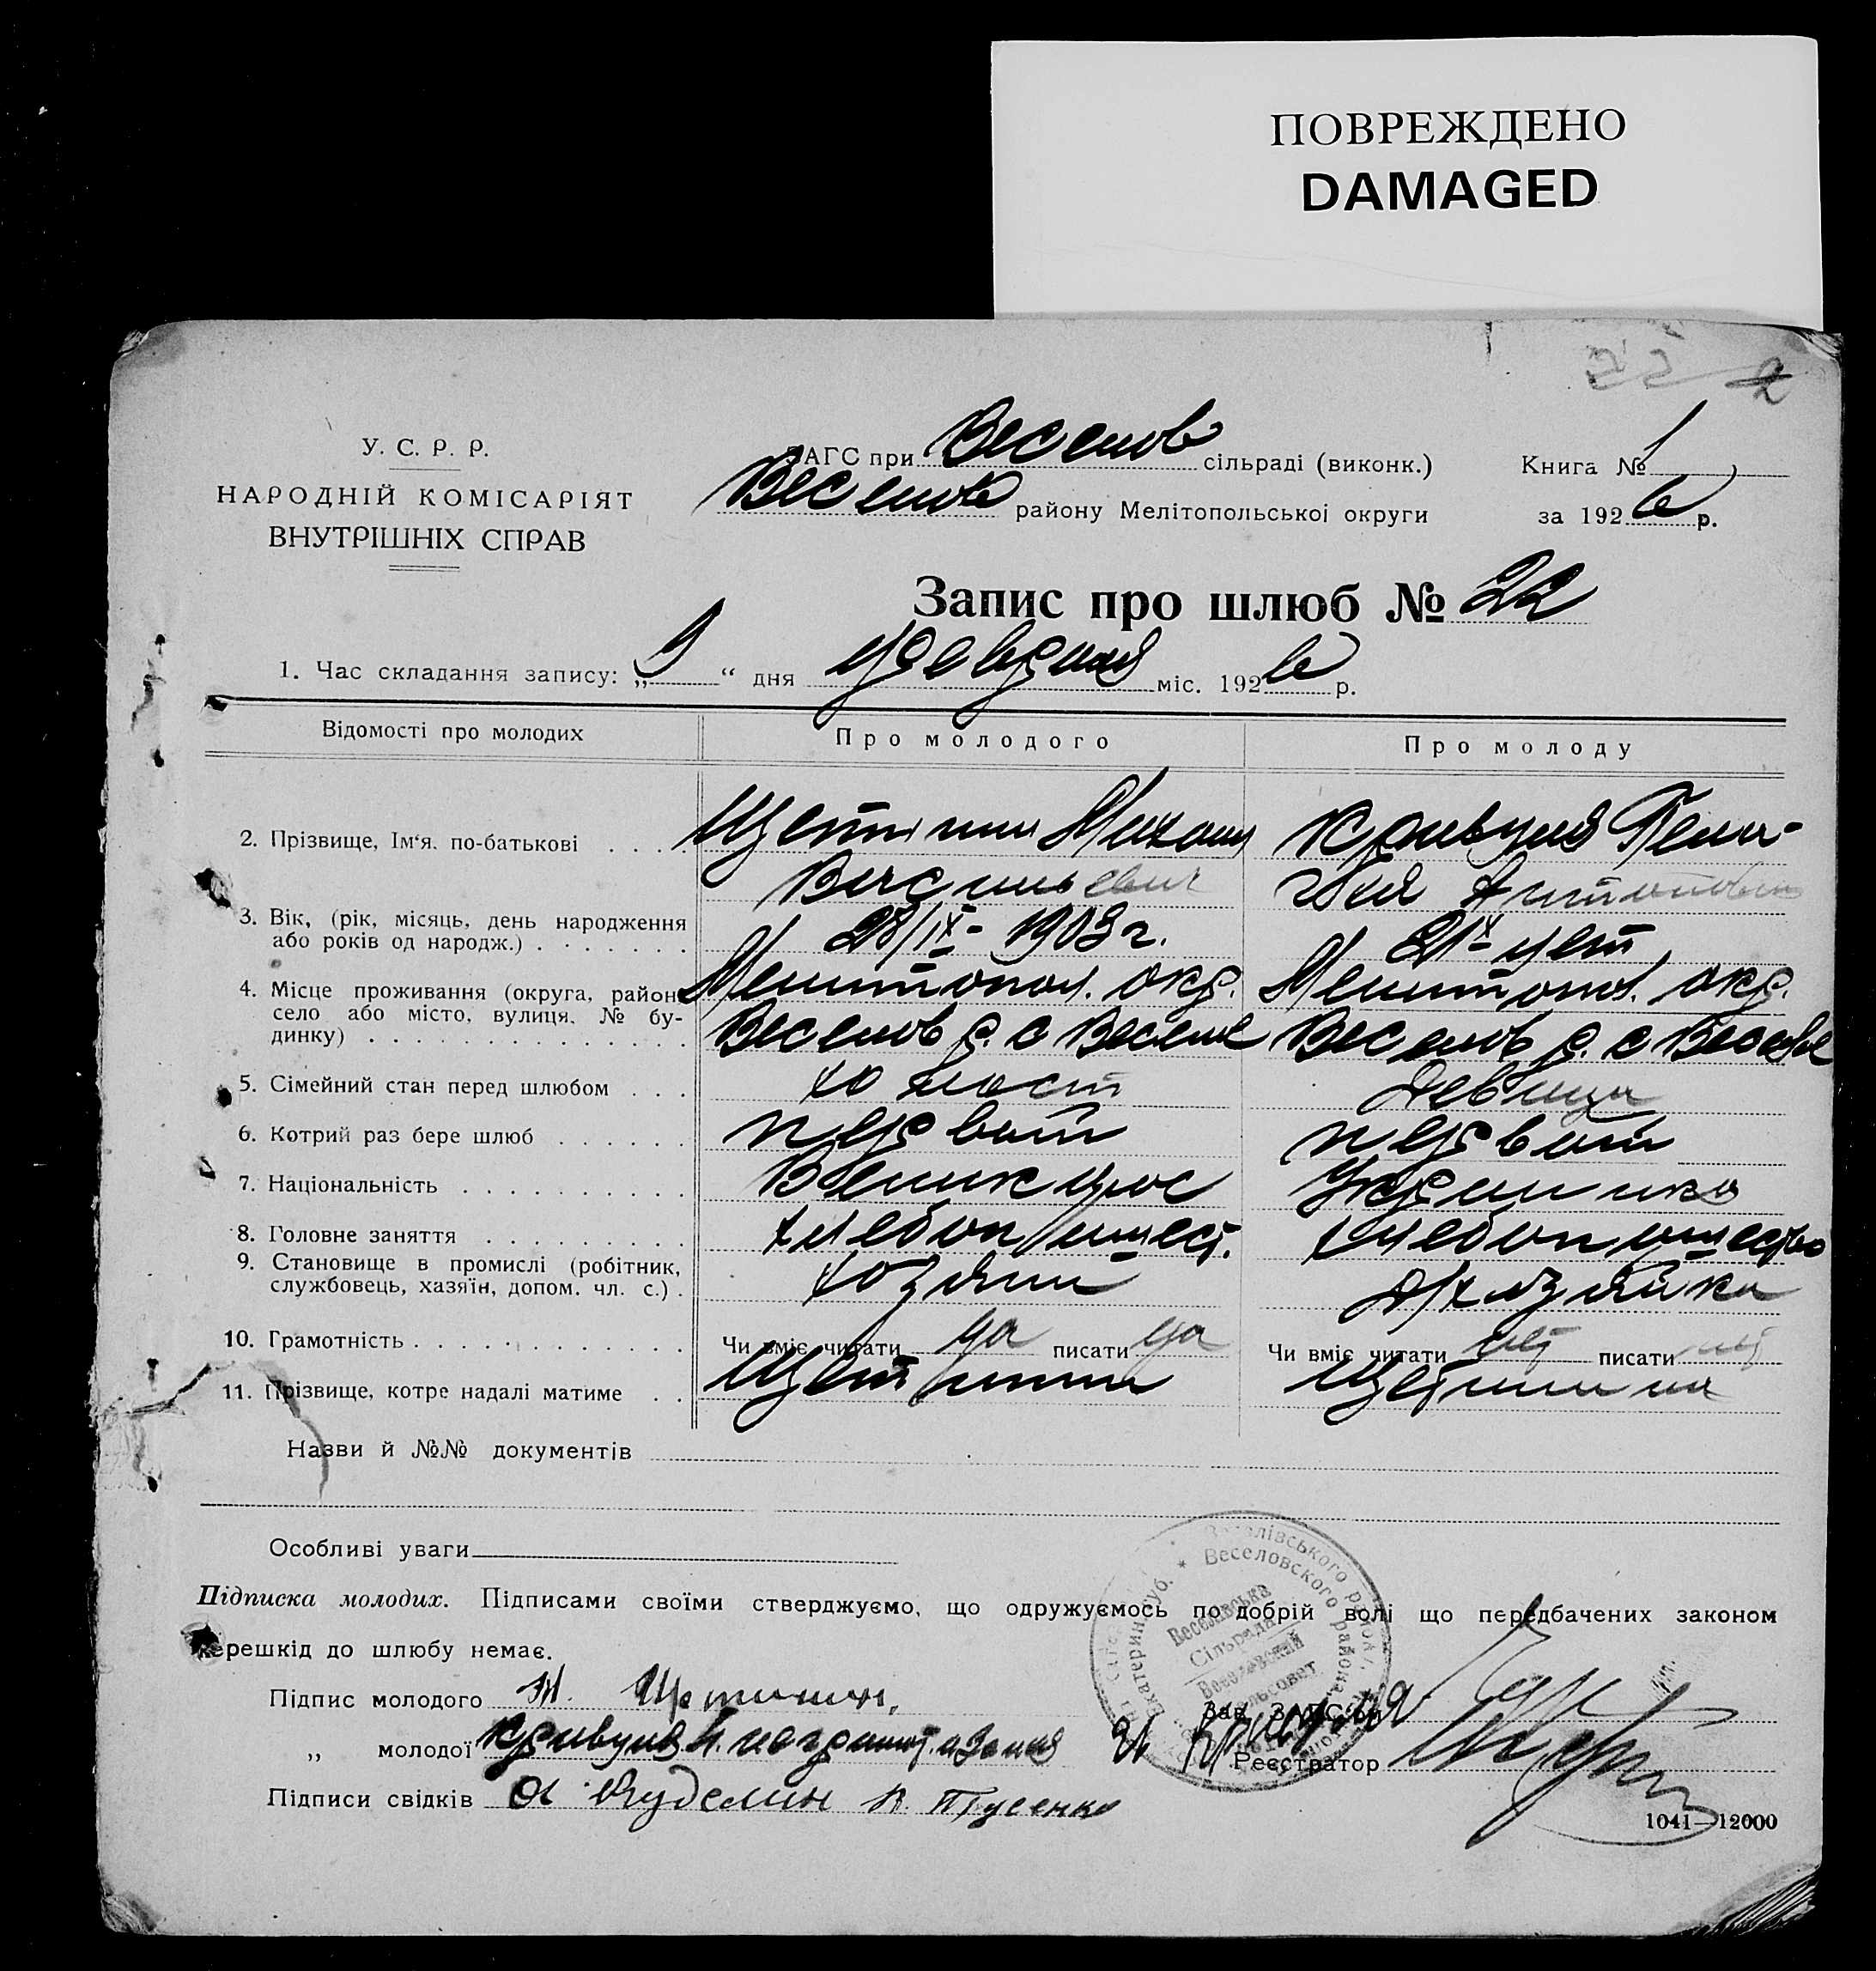 ПОВРЕЖДЕНО
DAMAGED
22 2
У. С. Р. Р.
НАРОДНІЙ КОМІСАРІЯТ
ВНУТРІШНІХ СПРАВ
ЗАГС при Веселов сільраді (виконк.)
Веселов району Мелітопольської округи
Книга № 1
за 1926 р.
Запис про шлюб № 22
1. Час складання запису: „9“ дня февраля міс. 1926 р.
Відомості про молодих
Про молодого
Про молоду
2. Прізвище, Ім‘я. по-батькові . . .
Щетинин Михаил
Васильевич
Кривуля Пела-
гея Антоновна
3. Вік, (рік, місяць, день народження
або років од народж.) . . . . . . .
28/IX - 1903 г.
21 лет
4. Місце проживання (округа, район
село або місто, вулиця, № бу-
динку) . . . . . . . . . . . . . .
Мелитопол. окр.
Веселов р. с Веселое
Мелитопол. окр.
Веселов р. с Веселое
5. Сімейний стан перед шлюбом . . .
холост
Девица
6. Котрий раз бере шлюб . . . . . .
первый
первый
7. Національність . . . . . . . . . .
Великорос
Украинка
8. Головне заняття . . . . . . . . .
хлебопашест.
хлебопашество
9. Становище в промислі (робітник,
службовець, хазяїн, допом. чл. с.) .
хозяин
Дхозяйка
10. Грамотність . . . . . . . . . . . .
Чи вміє читати да писати да
Чи вміє читати нет писати нет
11. Прізвище, котре надалі матиме . .
Щетинин
Щетинина
Назви й №№ документів
Особливі уваги
Підписка молодих. Підписами своїми стверджуємо, що одружуємось по добрій волі що передбачених законом
перешкід до шлюбу немає.
Веселівського району
Веселовского района
Екатерин. губ.
Веселівська
Сільрада
Веселовский
сельсовет
Підпис молодого М. Щетинин.
„ молодої Кривуля П. неграмот. а за нея
Зав. ЗАГС'ом
Реєстратор
Підписи свідків
1041—12000